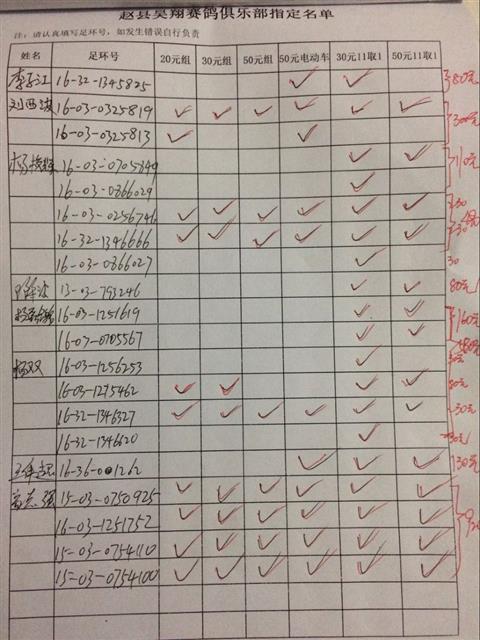 赵县昊翔赛鸽俱乐部指定名单
注：请认真填写足环号，如发生错误自行负责
姓名 足环号 20元组 30元组 50元组 50元电动车 30元11取1 50元11取1
16-32-1345825 ✓ ✓ 80元
刘西波 16-03-0325819 ✓ ✓ ✓ ✓ ✓ ✓
16-03-0325813 ✓ ✓
16-03-0705849 ✓ ✓ 110元
16-03-0866029 ✓
16-03-0256746 ✓ ✓ ✓ ✓ ✓ ✓
16-32-1346666 ✓ ✓ ✓ ✓ ✓ ✓
16-03-0866027 ✓ 30
13-03-793246 ✓ ✓ 80元
16-03-1251619 ✓ ✓ 160元
16-03-0705567 ✓ ✓
杨双 16-03-1256253 ✓ 30元
16-03-1275462 ✓ ✓ ✓ ✓
16-32-1346327 ✓ ✓ ✓ ✓ ✓ ✓
16-32-1346620 ✓
16-36-001262 ✓ ✓ ✓ 130元
高志强 15-03-0750925 ✓ ✓ ✓ ✓ ✓ ✓
16-03-1251752 ✓ ✓ ✓ ✓ ✓ ✓
15-03-0754110 ✓ ✓ ✓ ✓ ✓ ✓
15-03-0754100 ✓ ✓ ✓ ✓ ✓ ✓